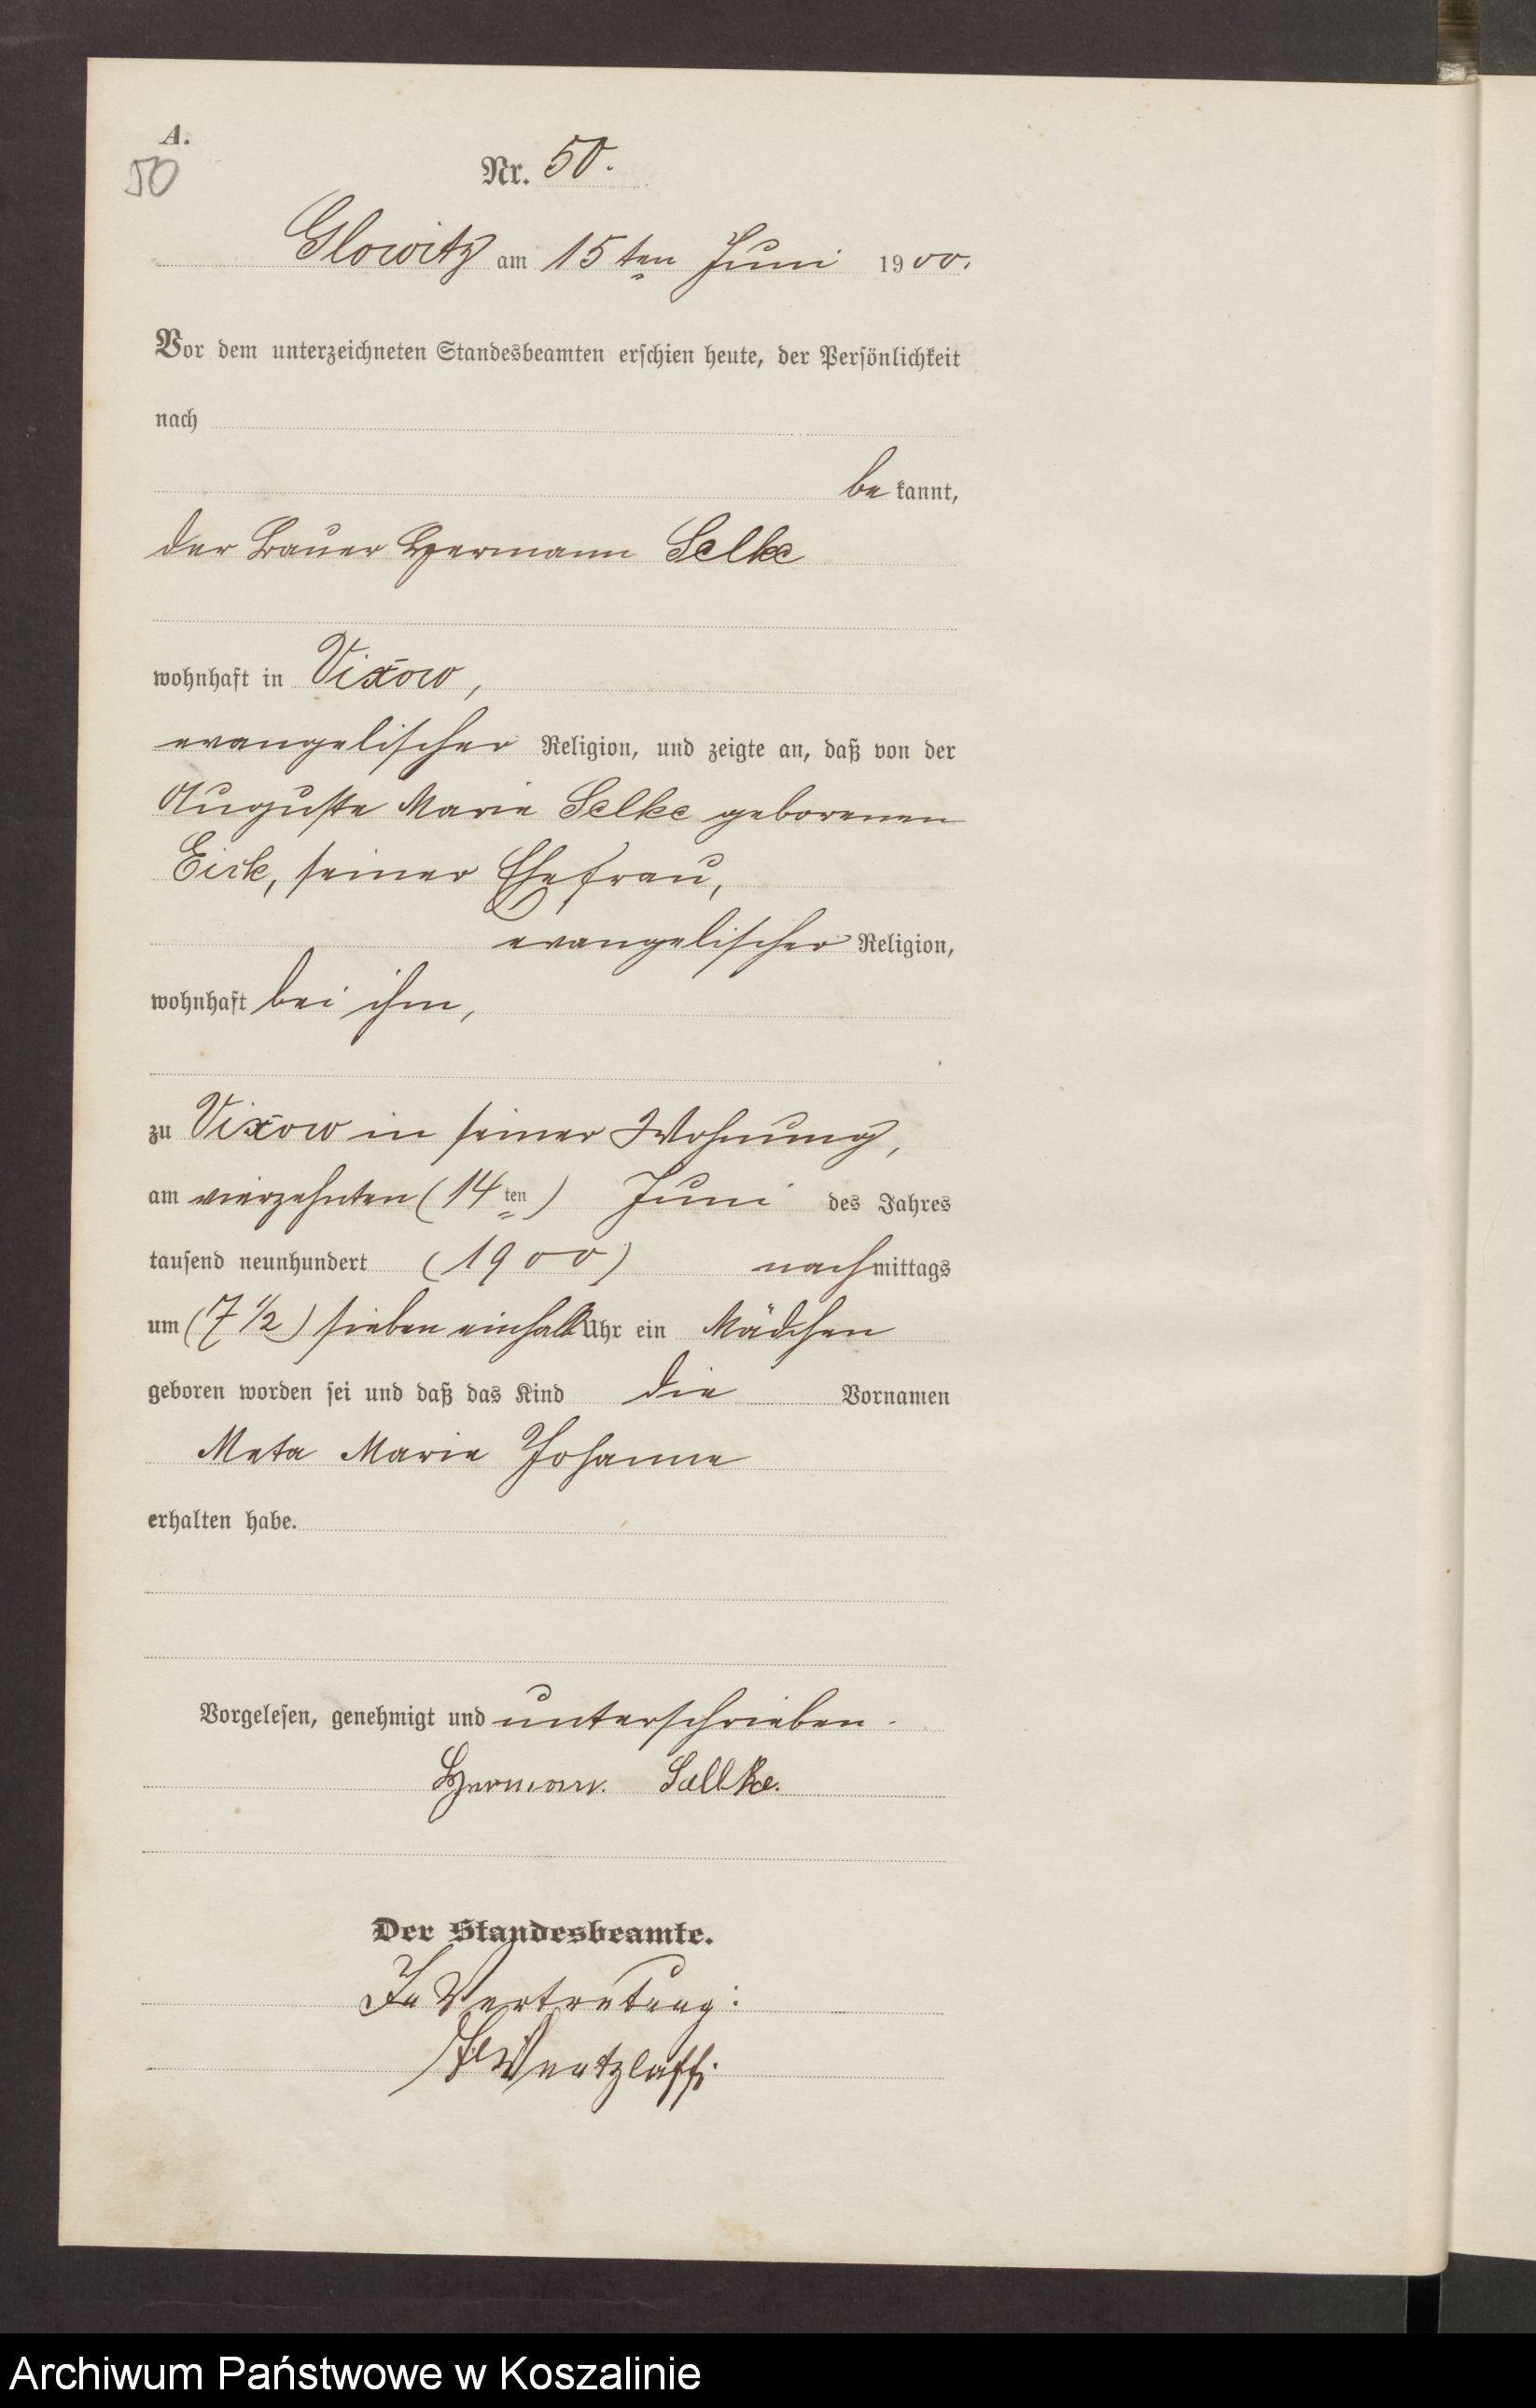 A.
50
Nr. 50.
Glowitz am 15ten Juni 1900.
Vor dem unterzeichneten Standesbeamten erschien heute, der Persönlichkeit
nach
be kannt,
der Bauer Hermann Selke
wohnhaft in Vixow,
evangelischer Religion, und zeigte an, daß von der
Auguste Marie Selke geborenen
Eick, seiner Ehefrau,
evangelischer Religion,
wohnhaft bei ihm,
zu Vixow in seiner Wohnung,
am vierzehnten (14ten) Juni des Jahres
tausend neunhundert (1900) nachmittags
um (7 1/2) sieben einhalb Uhr ein Mädchen
geboren worden sei und daß das Kind die Vornamen
Meta Marie Johanne
erhalten habe.
Vorgelesen, genehmigt und unterschrieben.
Herman. Sellke.
Der Standesbeamte.
In Vertretung:
Wentzlaff.
Archiwum Państwowe w Koszalinie